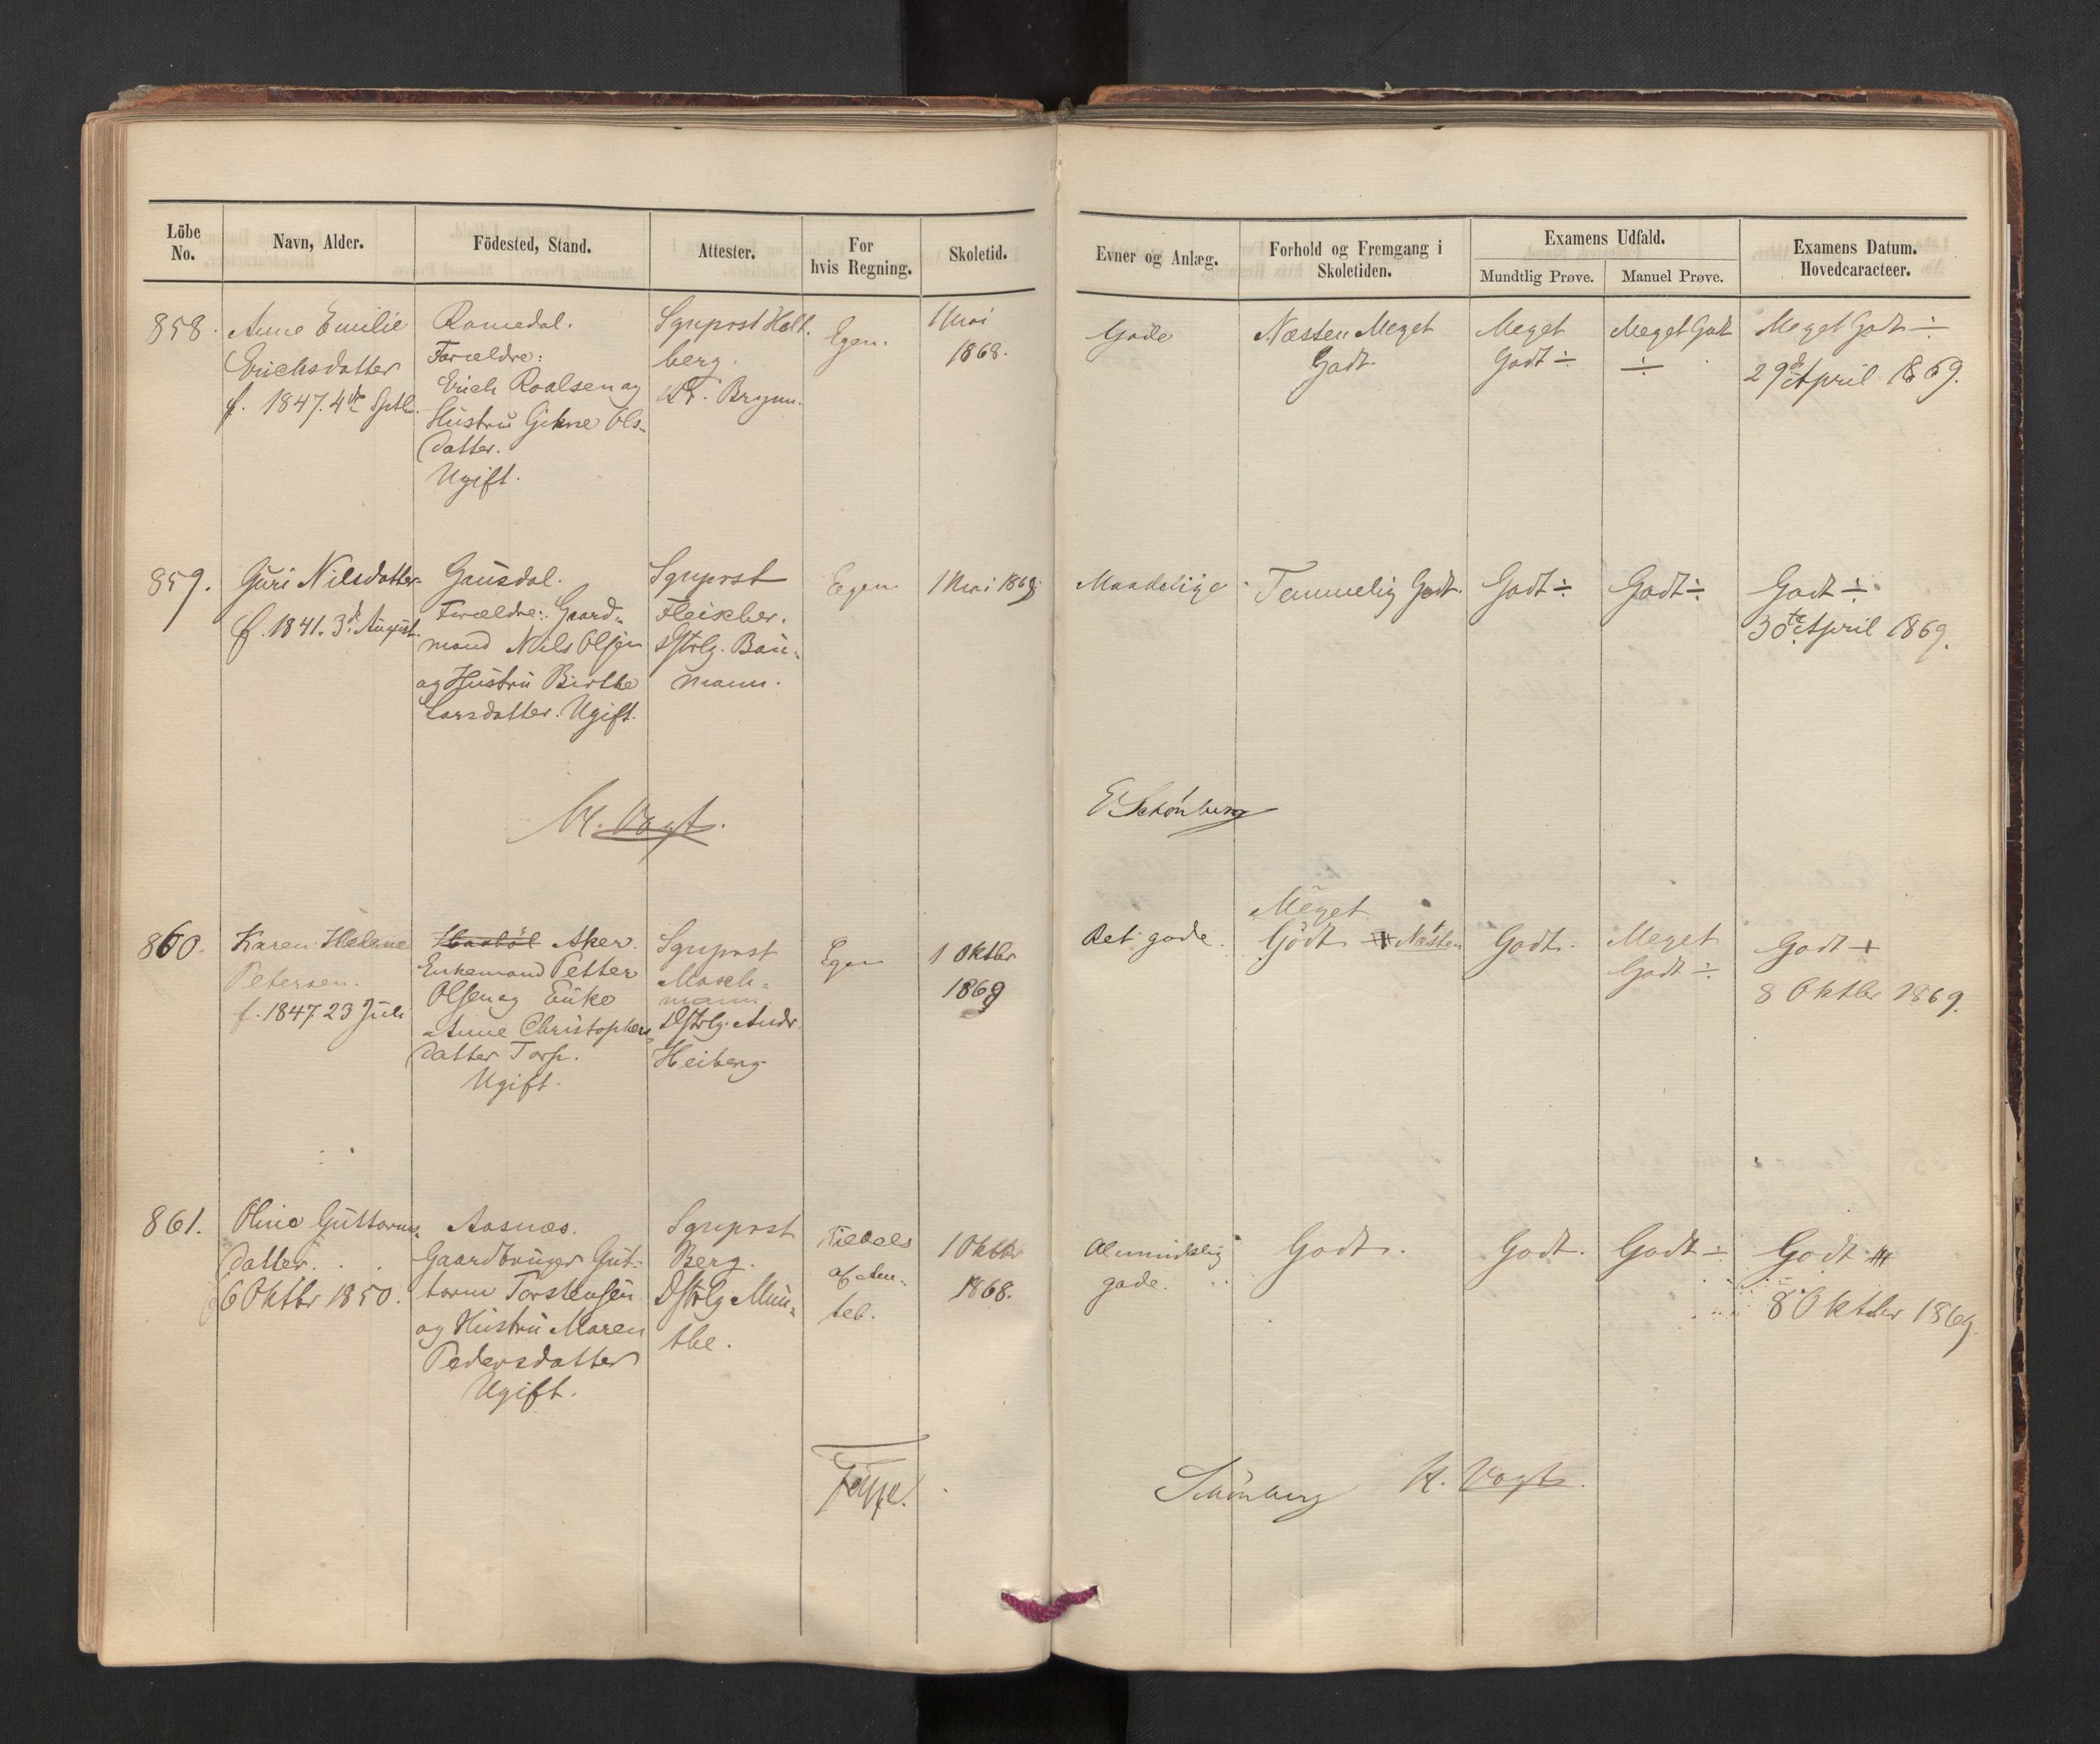 Löbe No.
Navn, Alder.
Födested, Stand.
Attester.
For hvis Regning.
Skoletid.
Evner og Anlæg.
Forhold og Fremgang i Skoletiden.
Examens Udfald.
Mundtlig Prøve.
Manuel Prøve.
Examens Datum. Hovedcaracteer.
858.
Anne Emilie
Erichsdatter
f. 1847. 4de Sptb.
Romedal.
Forældre:
Erich Roalsen og
Hustru Gihne Ols-
datter.
Ugift.
Sgnprst Holt.
berg.
Dr. Brynn.
Egen.
1 Mai
1868.
Gode
Næsten Meget
Godt.
Meget
Godt ÷
Meget Godt
÷
Meget Godt ÷
29de April 1869.
859.
Guri Nilsdatter
f. 1841. 3d. August.
Gausdal.
Forældre: Gaard-
mand Nils Olsen
og Hustru Birthe
Larsdatter. Ugift.
Sgnprst
Fleischer.
Dstrlg. Bau-
mann.
Egen
1 Mai 1868.
Maadelige
Temmelig Godt.
Godt ÷
Godt ÷
Godt ÷
30te April 1869.
M. Vogt.
E Schönberg
860.
Karen Helene
Petersen.
f. 1847 23 Juli
Aker.
Enkemand Petter
Olsen og Enke
Anne Christophers
datter Torp.
Ugift.
Sgnprst
Masch-
mann.
Dstrlg. Andr.
Heiberg
Egen
1 Oktbr
1869
Ret gode.
Meget
Godt Næsten
Godt.
Meget
Godt ÷
Godt +
8 Oktbr 1869.
861.
Oline Guttorms-
datter.
6 Oktbr 1850.
Aasnæs.
Gaardbruger Gut-
torm Torstensen
og Hustru Maren
Pedersdatter
Ugift.
Sgnprst
Berg.
Dstrlg Mun-
the.
Tildels
af Am-
tet.
1 Oktbr
1868.
Almindelig
gode.
Godt.
Godt.
Godt ÷
Godt
8 Oktbr 1869.
Schönberg
H. Vogt.